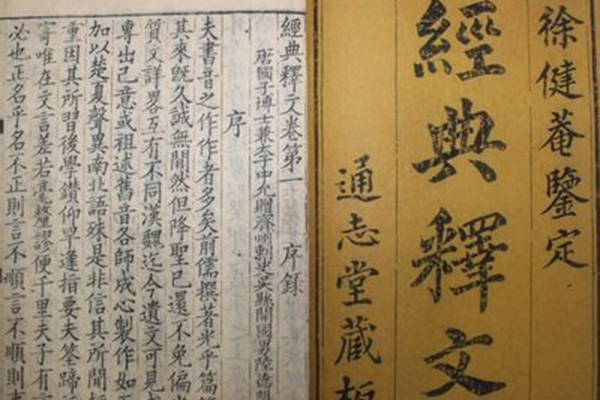 徐健菴鑒定
經典釋文
通志堂藏板
經典釋文卷第一 序錄
唐國子博士兼太子中允贈齊州刺史吳縣開國男陸德明
序
夫書音之作作者多矣前儒撰著光乎篇
其來既久誠無閒然但降聖已還不免偏
質文詳畧互有不同漢魏迄今遺文可見
專出己意或祖述舊音各師成心製作如
加以楚夏聲異南北語殊是非信其所聞
重因其所習後學鑽仰罕逢指要夫筌蹄
寄唯在文言差若毫釐謬便千里夫子有
必也正名乎名不正則言不順言不順則